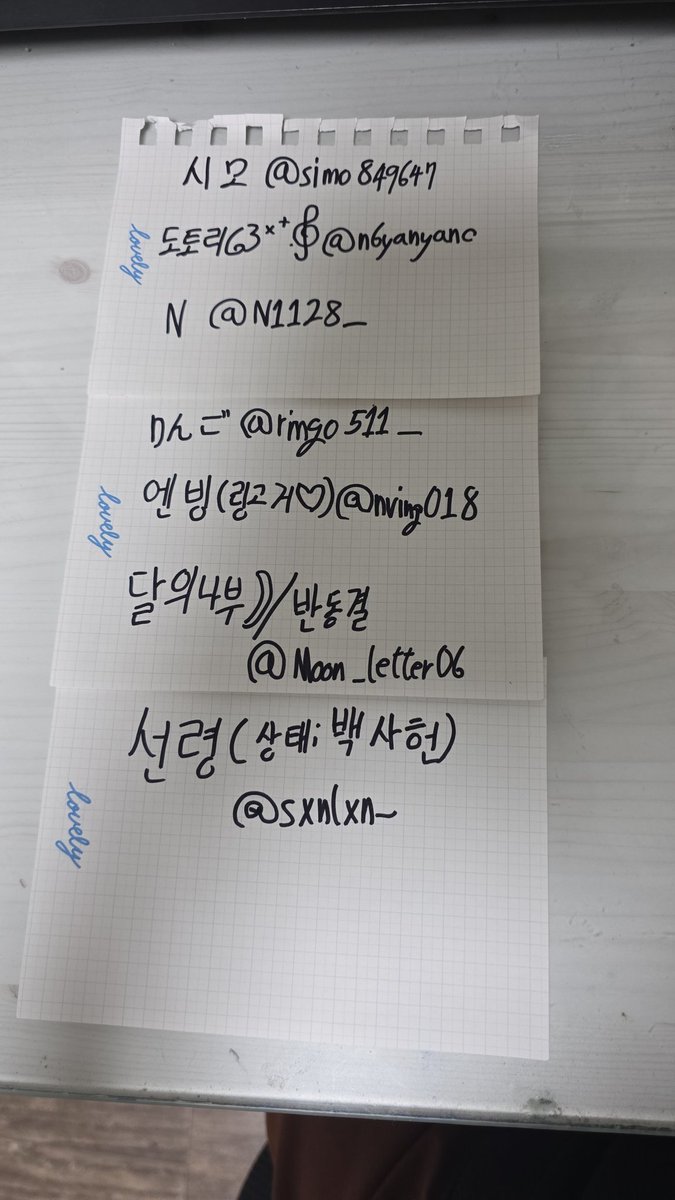 시모 @simo849647
lovely
도토리63×⁺.𝄞@n6yanyanc
N @N1128_
りんご @ringo511_
lovely
엔빙(링고거♡)@nving018
달의나부))/반동결
@Moon_letter06
선령(상태;백사헌)
@sxnlxn_
lovely